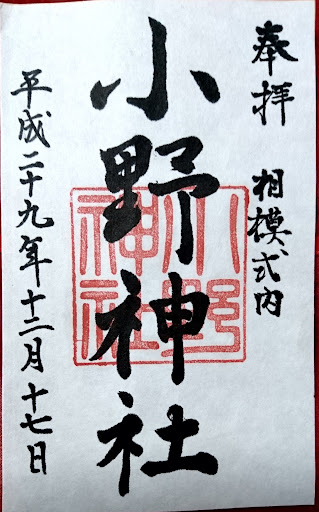 奉拝 相模式内
小野神社
小野
神社
平成二十九年十二月十七日